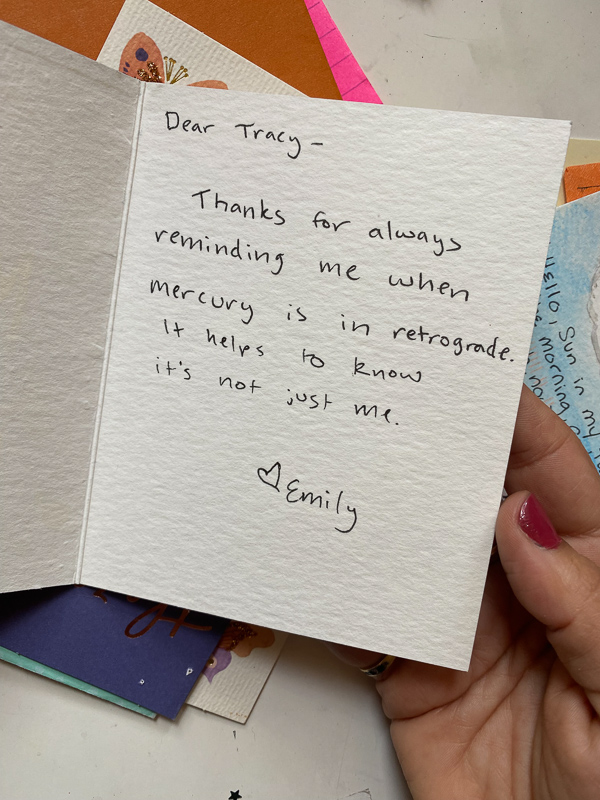 Dear Tracy –
Thanks for always
reminding me when
mercury is in retrograde.
It helps to know
it's not just me.
♡ Emily
Hello, Sun in my
morning